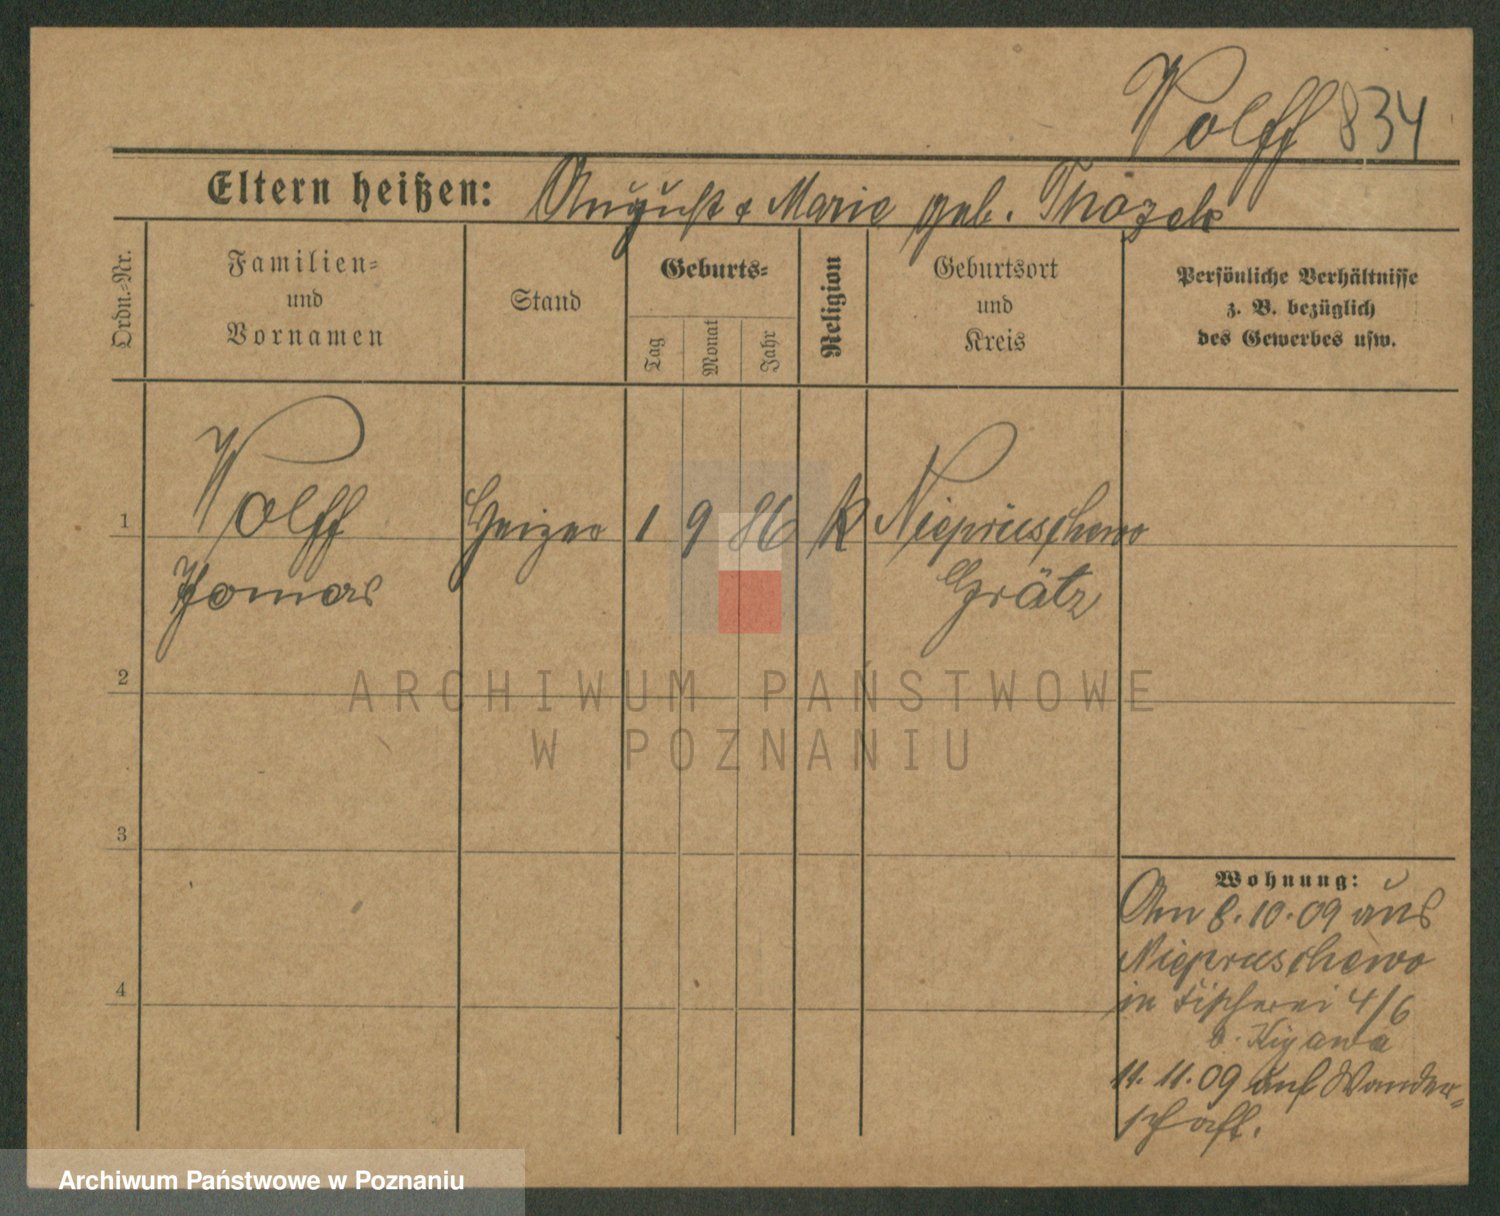 Wolff 834
Eltern heißen: August & Marie geb. Thözek
Ordn.-Nr.
Familien-
und
Vornamen
Stand
Geburts-
Tag
Monat
Jahr
Religion
Geburtsort
und
Kreis
Persönliche Verhältnisse
z. B. bezüglich
des Gewerbes usw.
1
Wolff
Heizer
1
9
86
K
Niepruschewo
Tomas
Grätz
2
ARCHIWUM PAŃSTWOWE
W POZNANIU
3
4
Wohnung:
Am 8.10.09 aus
Niepruschewo
in Fischerei 4/6
b. Kigawa
11.11.09 auf Wander-
schaft.
Archiwum Państwowe w Poznaniu